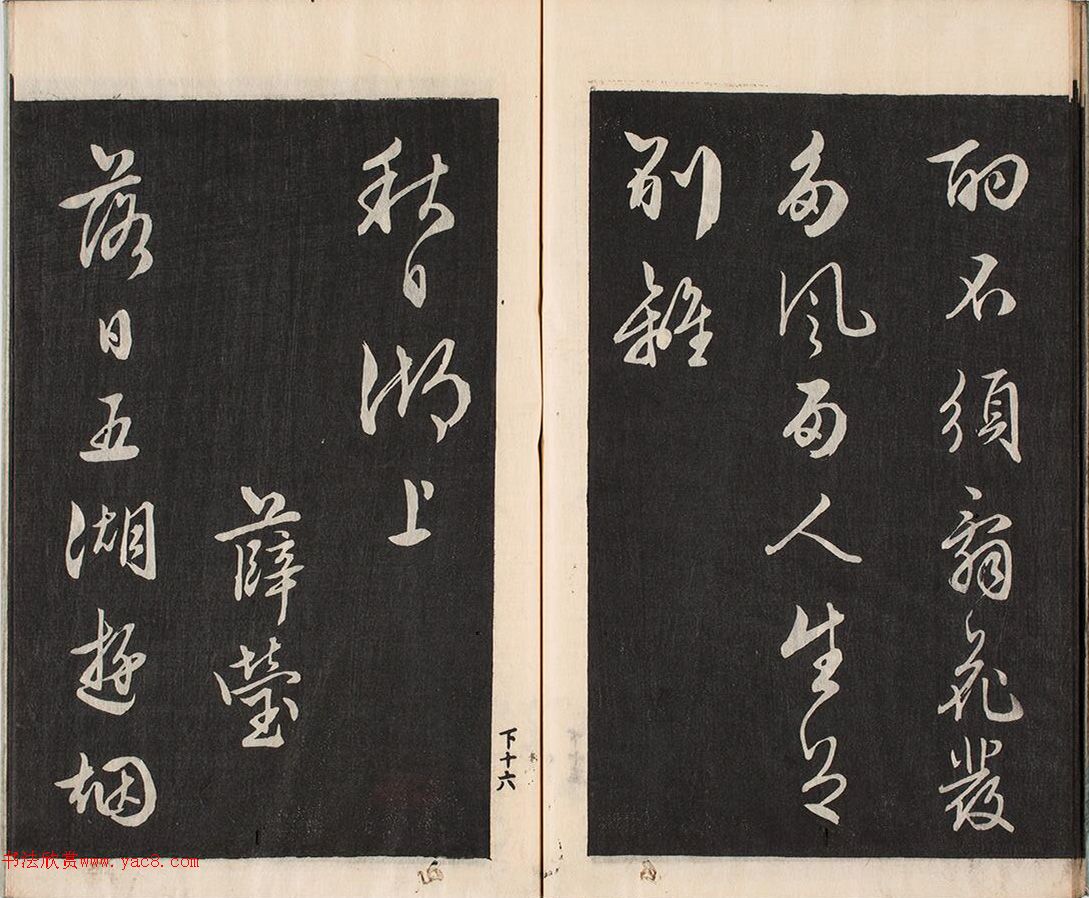 酌不須辭花發
多風雨人生足
別離
秋日湖上
薛瑩
落日五湖遊烟
下十六
16
书法欣赏www.yac8.com